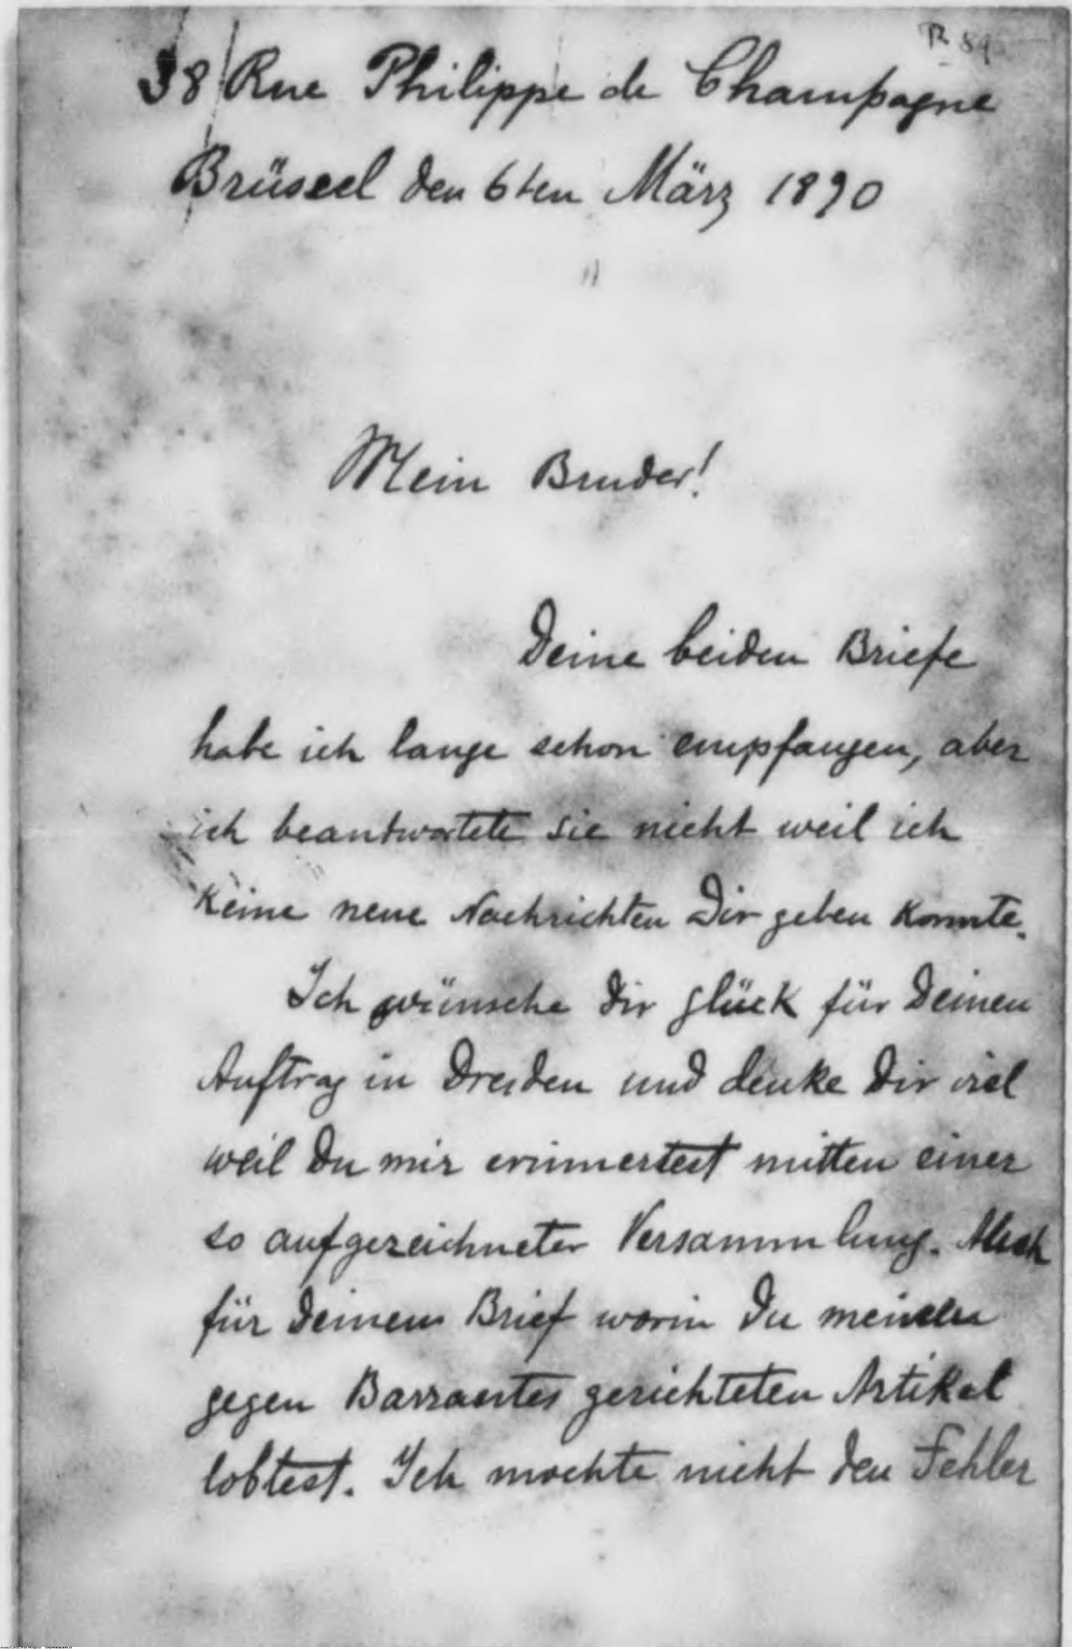 38 Rue Philippe de Champagne
Brüssel den 6ten März 1890
Mein Bruder!
Deine beiden Briefe
habe ich lange schon empfangen, aber
ich beantwortete sie nicht weil ich
keine neue Nachrichten Dir geben konnte.
Ich wünsche Dir glück für Deinen
Auftrag in Dresden und denke Dir viel
weil Du mir erinnertest mitten einer
so aufgezeichneter Versammlung. Auch
für Deinem Brief worin Du meinen
gegen Barrantes gerichteten Artikel
lobtest. Ich mochte nicht den Fehler